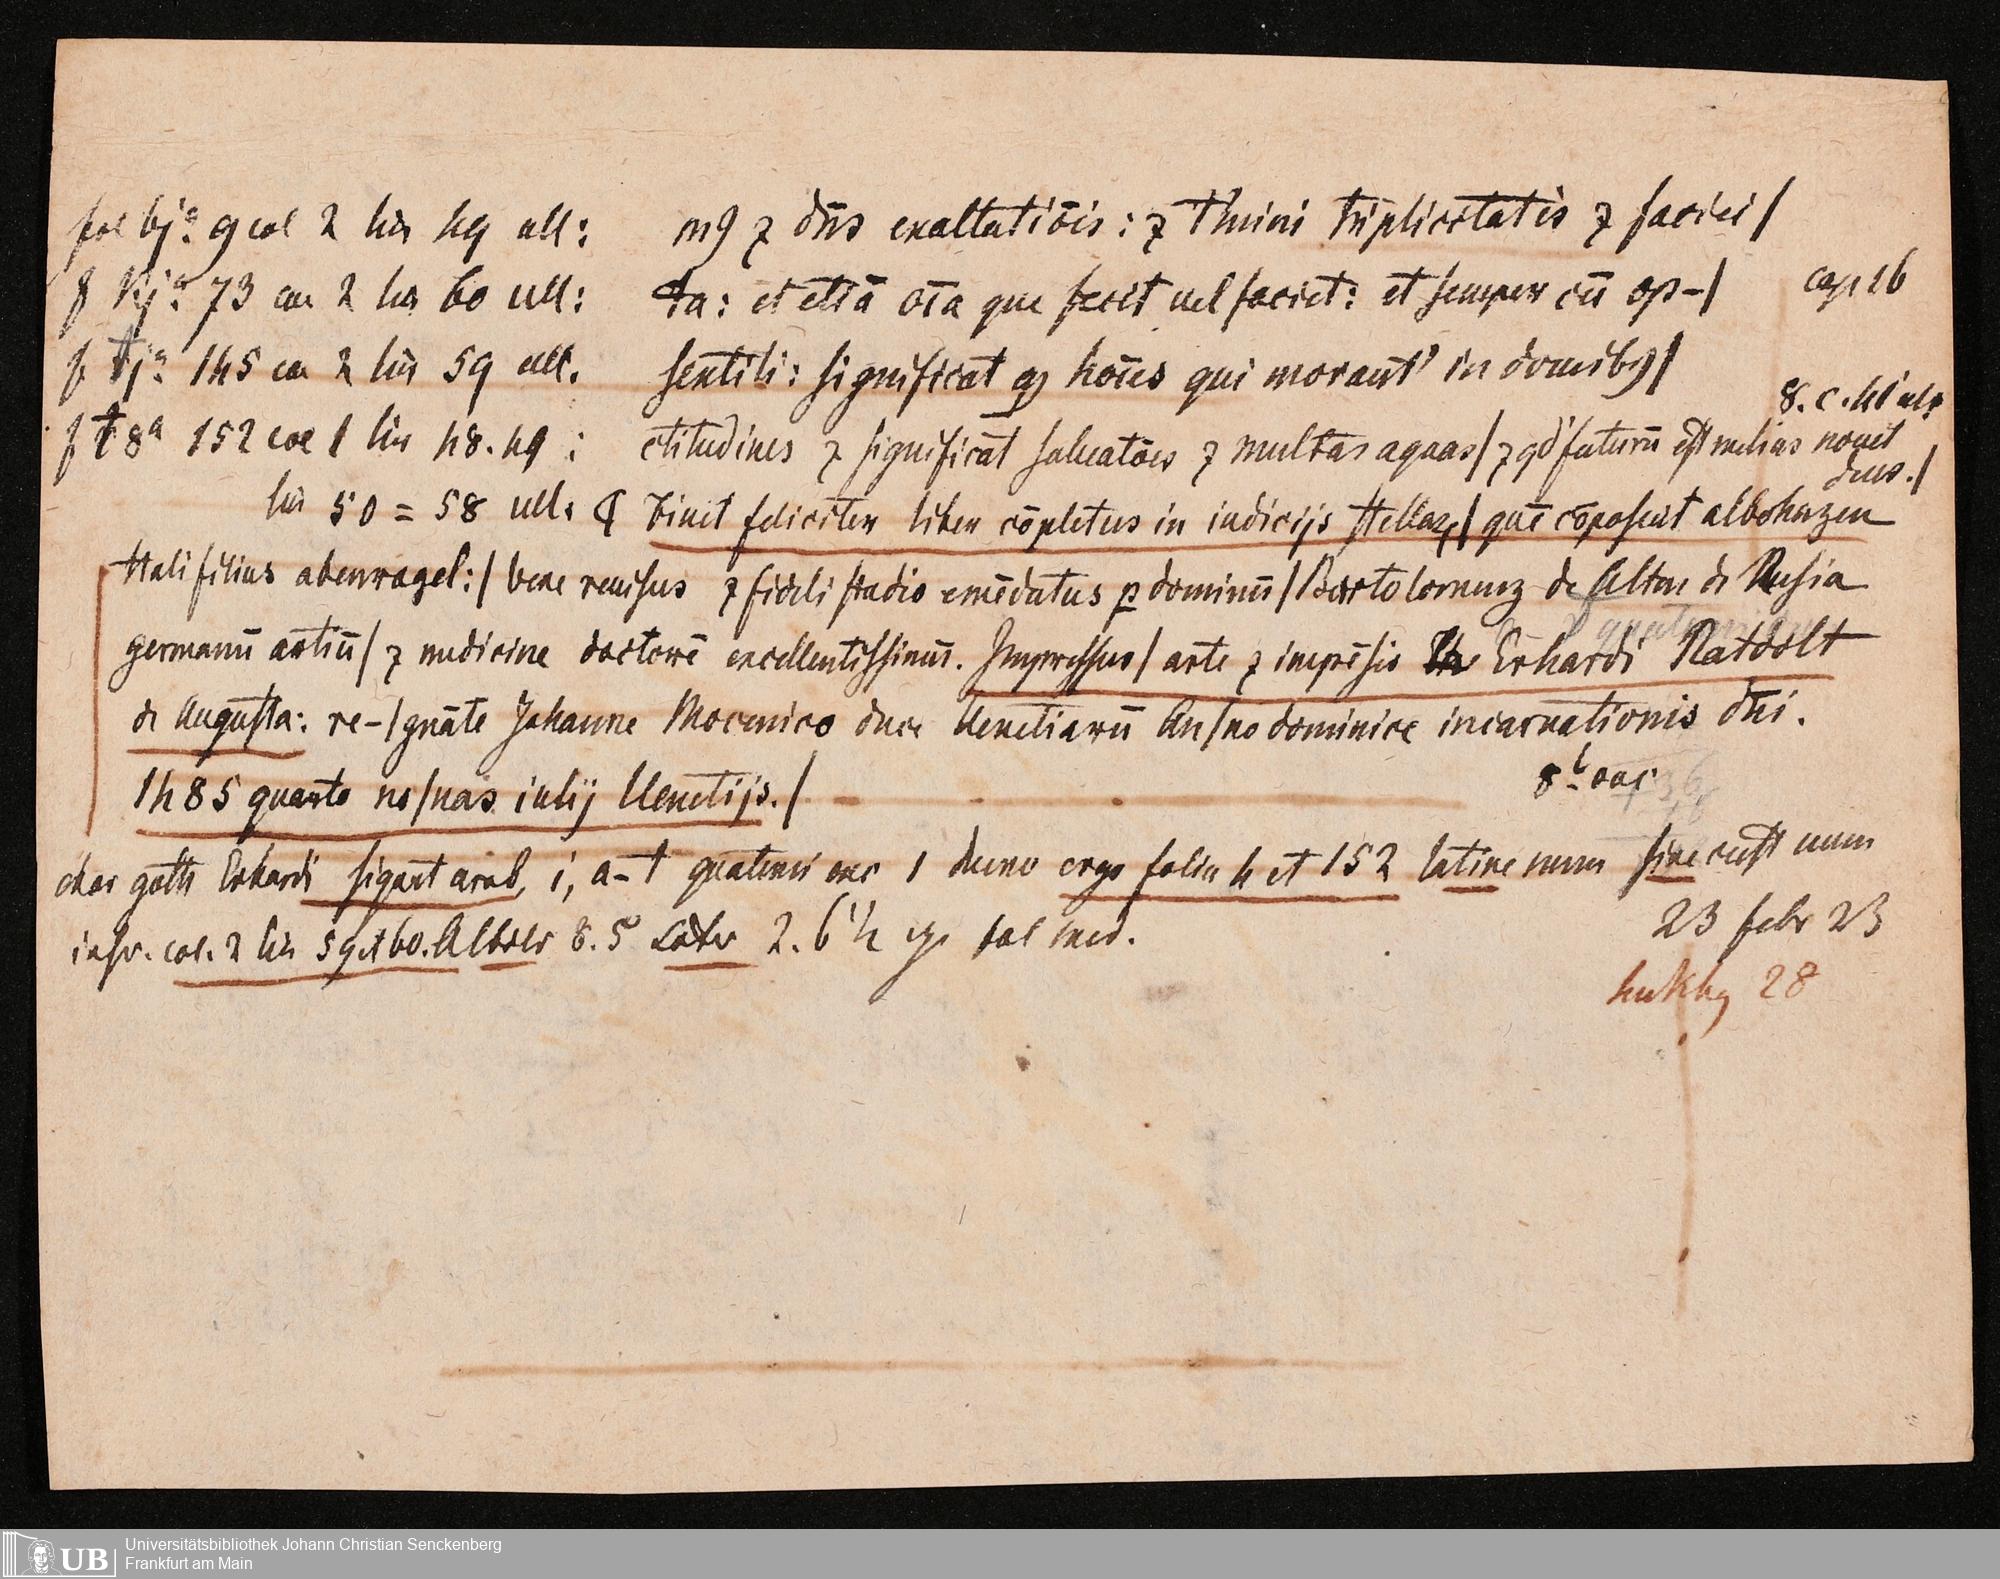 fol bj.ª 9 col 2 lin 49 ult: m9 ⁊ dn̄s exaltatiōis: ⁊ t'mini triplicitatis ⁊ faciei/
f kj.ª 73 col 2 lin 60 ult: ta: et etiā oīa que fecit uel faciet: et semper cū op-/ cap 16
f tj.ª 145 col 2 lin 59 ult. sextili: significat ꝙ hoīes qui morant' in domib9/
8. c. 41 ult
f t 8ª 152 col 1 lin 48.49: ctitudines ⁊ significāt saluatōes ⁊ multas aquas/ ⁊ qd' futurū est melius nouit
deus./
lin 50 = 58 ult: ¶ Finit feliciter liber cōpletus in iudicijs stellaꝝ/ quē cōposuit albohazen
Hali filius abenragel:/ bene reuisus ⁊ fideli studio emēdatus ꝑ dominū/ Bartolomeuz de Alten de Nusia
germanū artiū/ ⁊ medicine doctorē excellentissimū. Impressus/ arte ⁊ impēsis Erhardi Ratdolt
de Augusta: re-/gnāte Johanne Mocenico duce Uenetiarū An/no dominice incarnationis dn̄i.
1485 quarto no/nas iulij Uenetijs./
char goth Erhardi signt arab, i, a-t quaterni exc 1 duerno ergo folia 4 et 152 latine num sine cust num
inscr. col. 2 lin 59 et 60. Altdlr 8.5 Later 2. 6 ½
23 febr 23
28